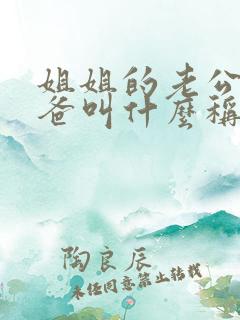 姐姐的老公
爸叫什麼稱
陶良辰
未经同意禁止转载